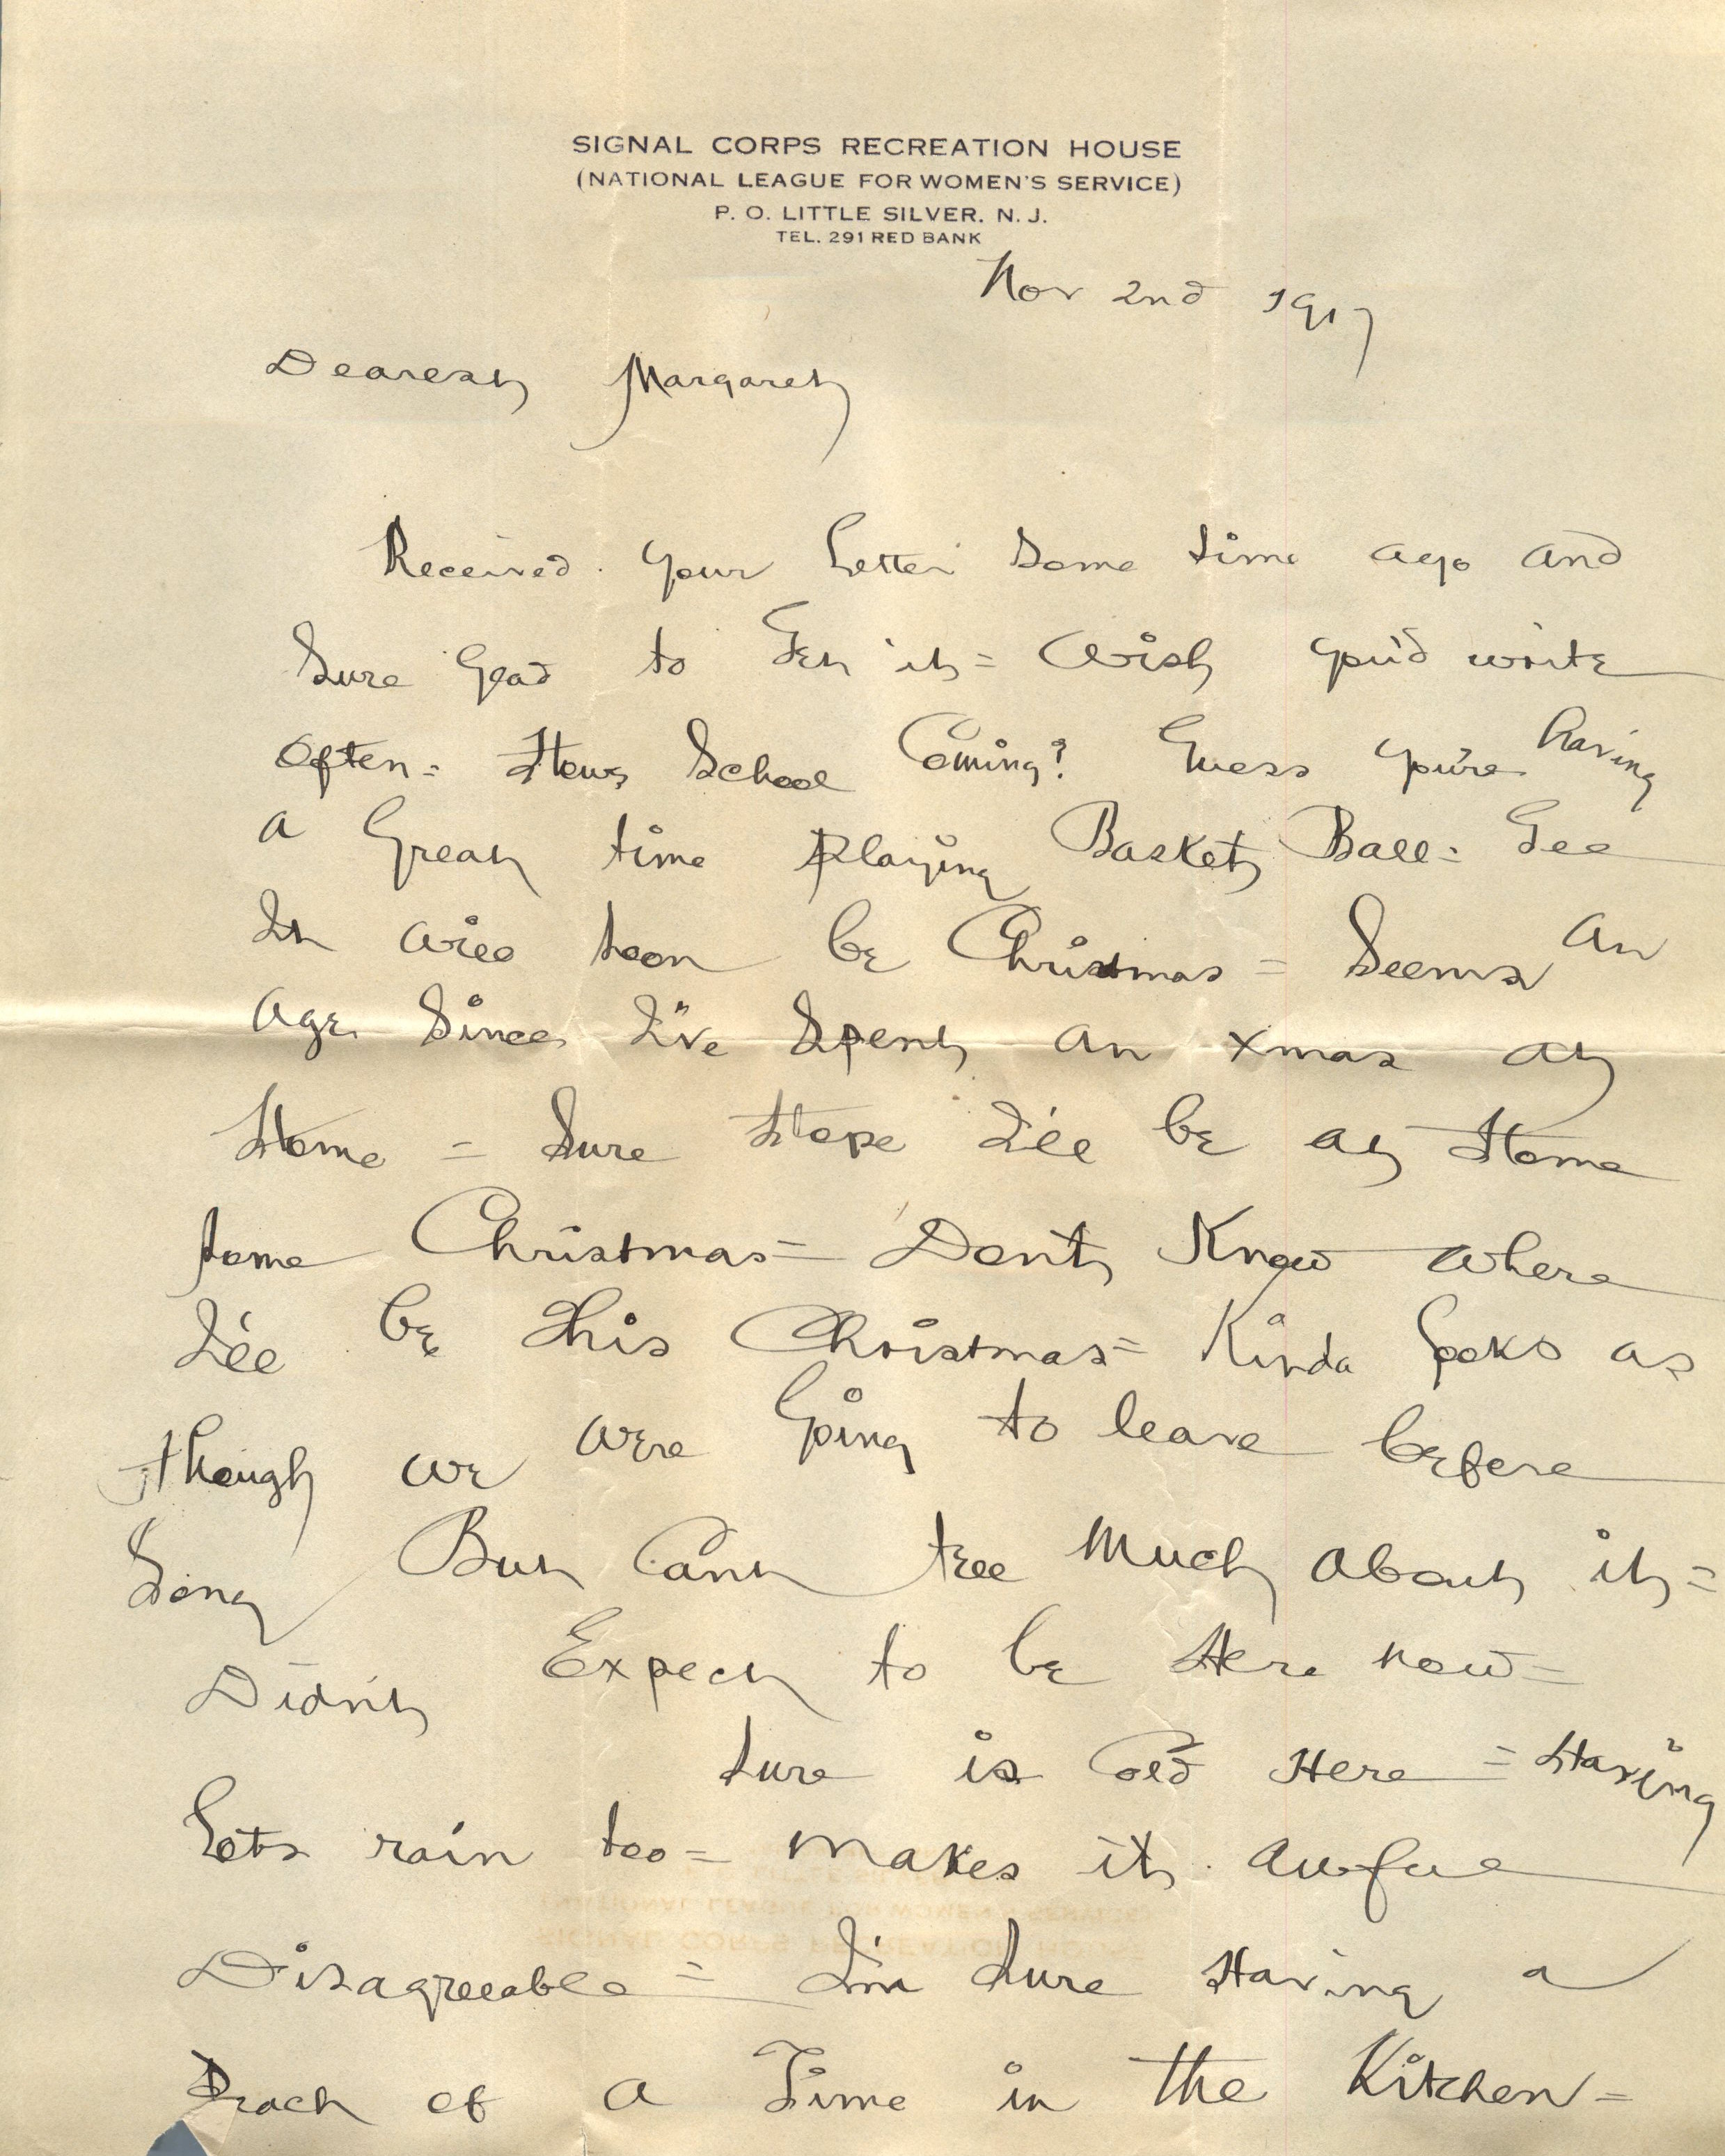 SIGNAL CORPS RECREATION HOUSE
(NATIONAL LEAGUE FOR WOMEN'S SERVICE)
P. O. LITTLE SILVER, N. J.
TEL. 291 RED BANK
Nov 2nd 1917
Dearest Margaret
Received your Letter some time ago and
Sure Glad to Get it = Wish you'd write
often = Hows School Coming? Guess you're having
a Great time playing Basket Ball = Gee
It will soon be Christmas = Seems an
age since I've spent an xmas at
Home = Sure Hope I'll be at Home
some Christmas = Don't Know where
I'll be this Christmas = Kinda Looks as
though we were Going to leave before
Long But Cant tell Much about it =
Didn't Expect to be Here now =
Sure is Cold Here = Having
Lots rain too = makes it awful
Disagreeable = I'm Sure Having a
of a Time in the Kitchen =